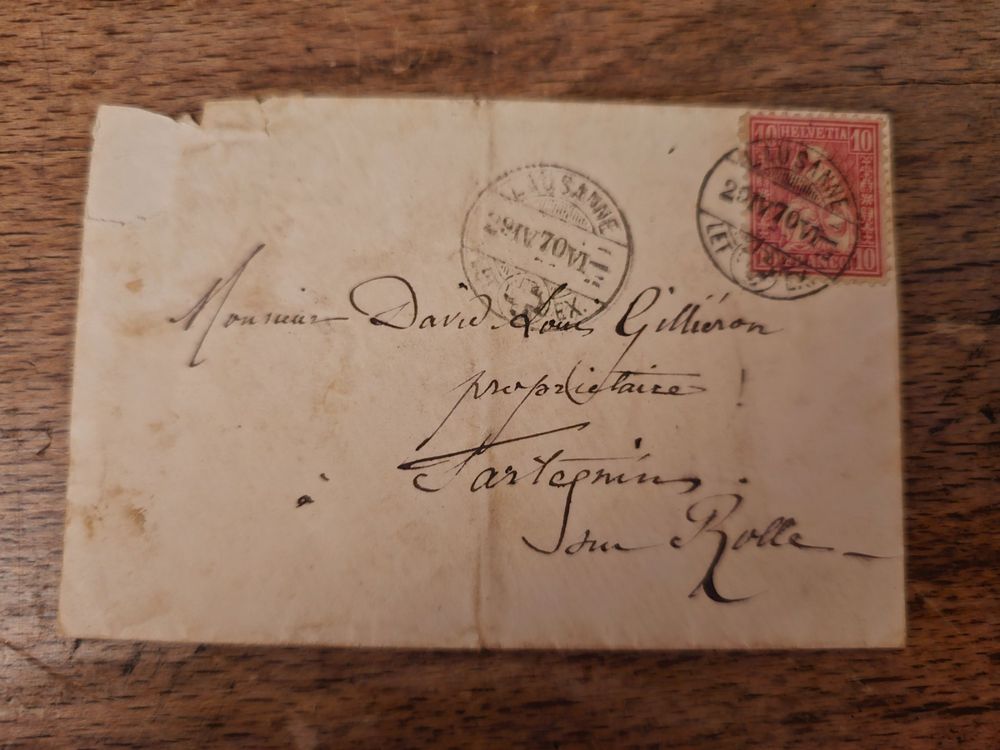 10 HELVETIA 10
LAUSANNE
29 IV 70 VI
LET EX.
FRANCO 10
LAUSANNE
29 IV 70 VI
EX.
Monsieur David Louis Gilliéron
propriétaire !
à Tartegnin
sur Rolle